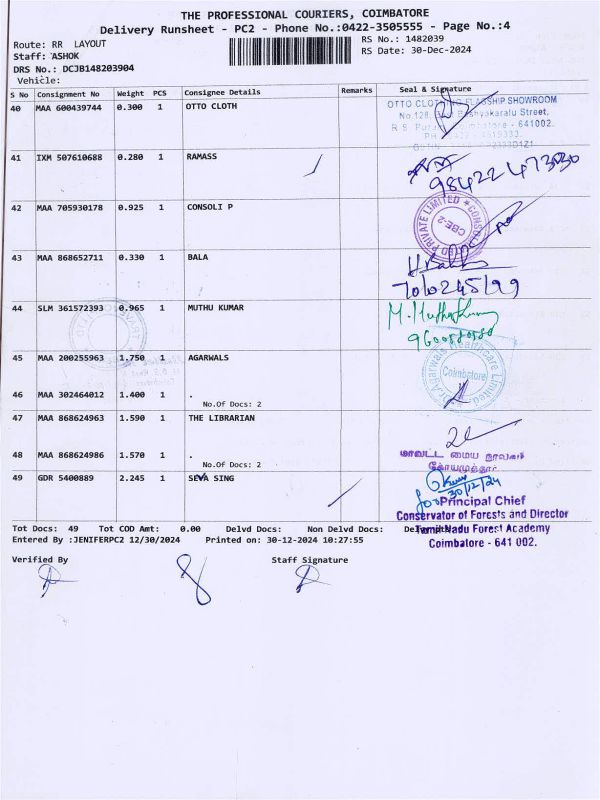 THE PROFESSIONAL COURIERS, COIMBATORE
Delivery Runsheet - PC2 - Phone No.:0422-3505555 - Page No.:4
Route: RR LAYOUT
RS No.: 1482039
Staff: ASHOK
RS Date: 30-Dec-2024
DRS No.: DCJB148203904
Vehicle:
S No Consignment No Weight PCS Consignee Details Remarks Seal & Signature
40 MAA 600439744 0.300 1 OTTO CLOTH
OTTO CLOTHING FLAGSHIP SHOWROOM
No.128, Bashyakaralu Street,
R S Puram, Coimbatore - 641002.
41 IXM 507610688 0.280 1 RAMASS
98422 473030
42 MAA 705930178 0.925 1 CONSOLI P
PRIVATE LIMITED
CBE-2
43 MAA 868652711 0.330 1 BALA
44 SLM 361572393 0.965 1 MUTHU KUMAR
M. Muthu Kumar
9600580580
45 MAA 200255963 1.750 1 AGARWALS
Dr. Agarwals Healthcare Limited
Coimbatore
46 MAA 302464012 1.400 1 .
No.Of Docs: 2
47 MAA 868624963 1.590 1 THE LIBRARIAN
48 MAA 868624986 1.570 1 .
No.Of Docs: 2
மாவட்ட மைய நூலகம்
கோயமுத்தூர்
49 GDR 5400889 2.245 1 SEVA SING
30/12/24
Principal Chief
Conservator of Forests and Director
Tamil Nadu Forest Academy
Coimbatore - 641 002.
Tot Docs: 49 Tot COD Amt: 0.00 Delvd Docs: Non Delvd Docs:
Entered By :JENIFERPC2 12/30/2024 Printed on: 30-12-2024 10:27:55
Verified By Staff Signature